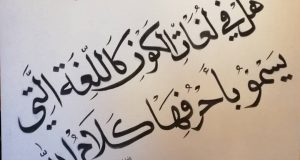 هل في لغات الكون كاللّغة الّتي
يسمو بأحرفها كلام الله